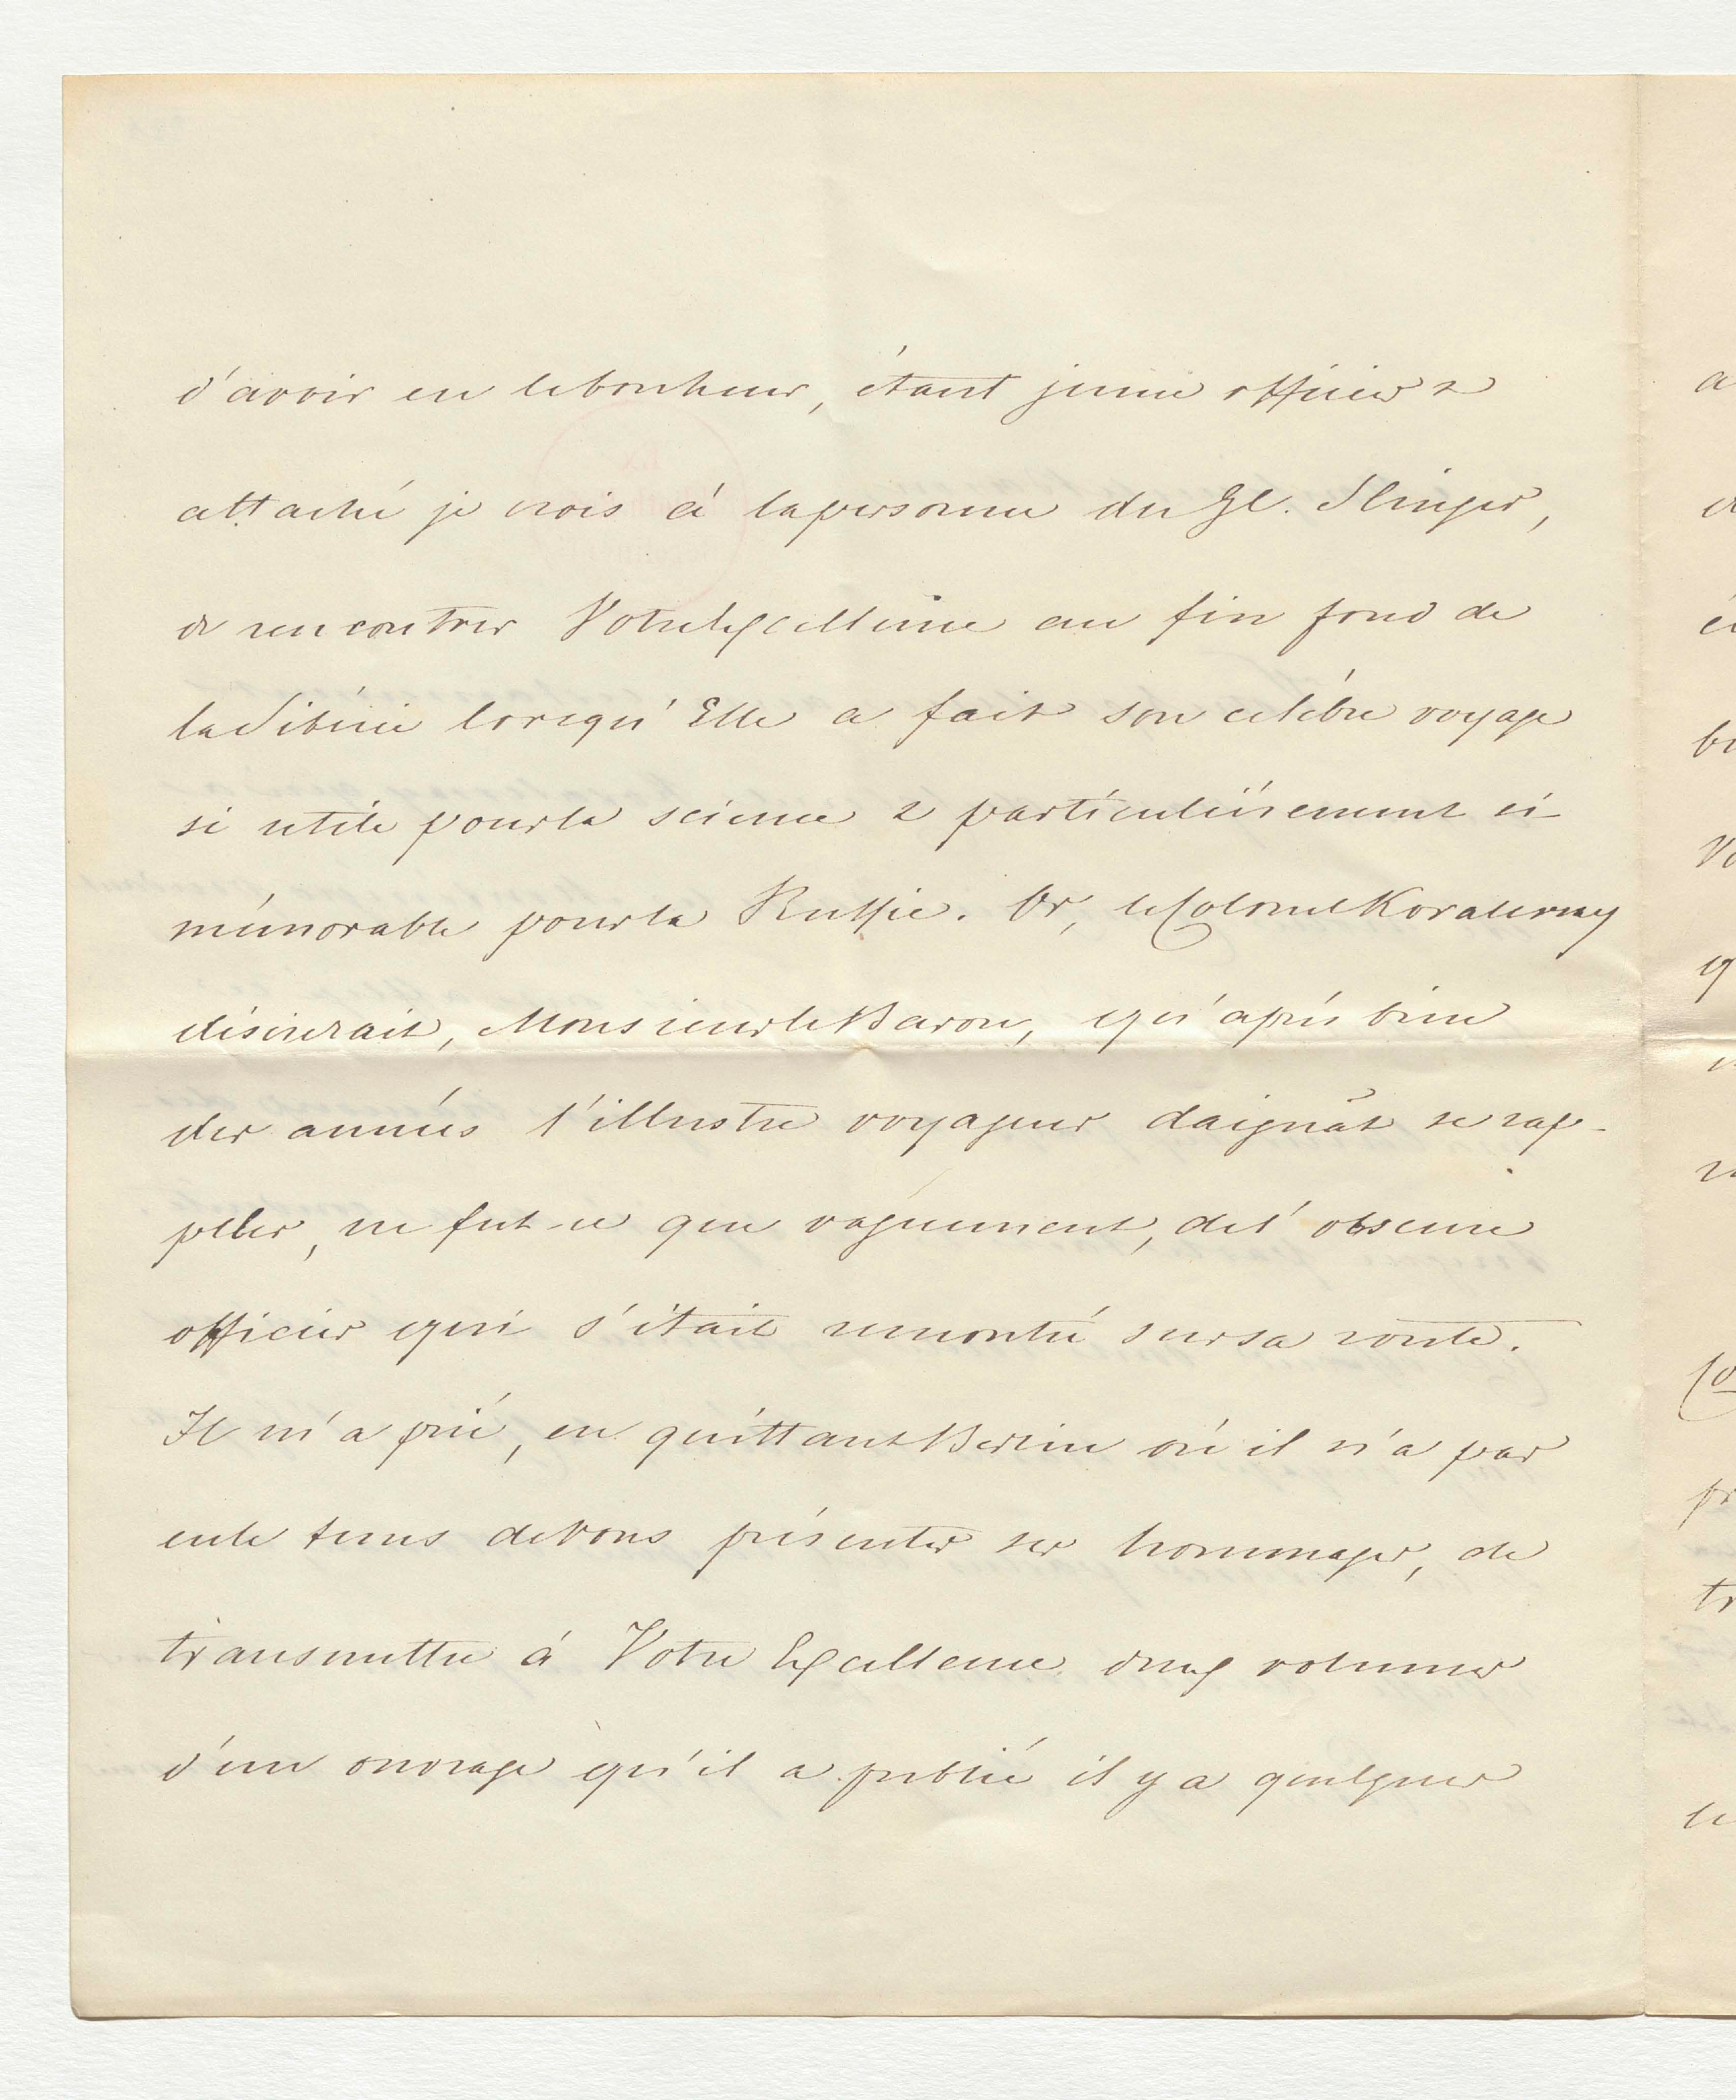 d'avoir eu le bonheur, étant jeune officier &
attaché je crois à la personne du Gl. Slinger,
de rencontrer Votre Excellence au fin fond de
la Sibérie lorsqu'Elle a fait son célèbre voyage
si utile pour la science & particulièrement si
mémorable pour la Russie. Or, le Colonel Kovalevsky
désirerait, Monsieur le Baron, qu'après bien
des années l'illustre voyageur daignât se rap-
peller, ne fut-ce que vaguement, de l'obscure
officier qui s'était rencontré sur sa route.
Il m'a prié, en quittant Berlin où il n'a pas
eu le tems de Vous présenter ses hommages, de
transmettre à Votre Excellence deux volumes
d'un ouvrage qu'il a publié il y a quelques